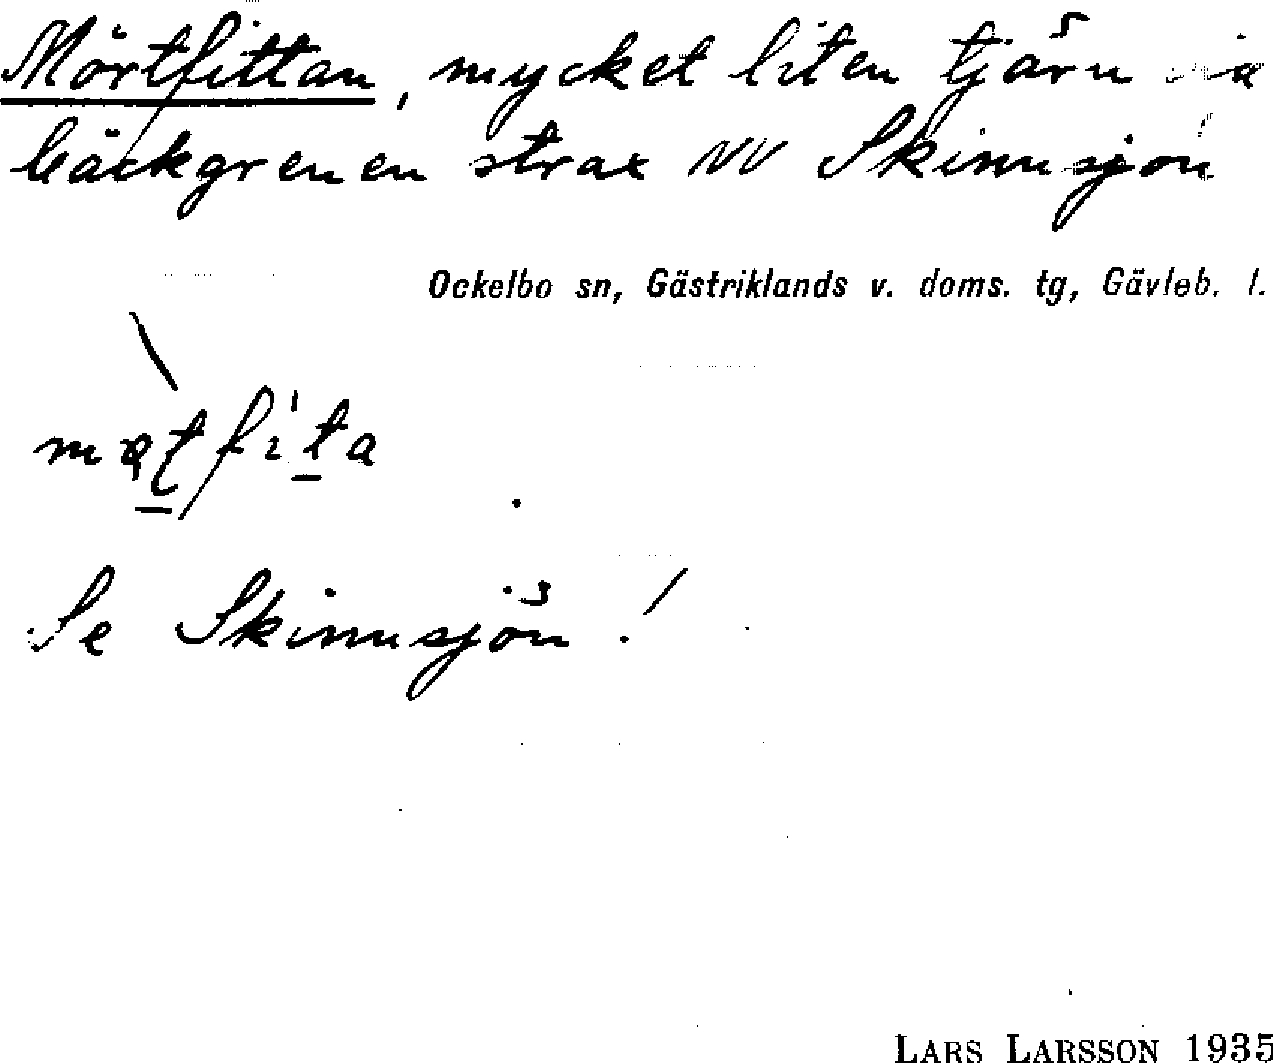 Mörtfittan, mycket liten tjärn
bäckgrenen strax NV Skinnsjön
Ockelbo sn, Gästriklands v. doms. tg, Gävleb. l.
Se Skinnsjön!
LARS LARSSON 1935